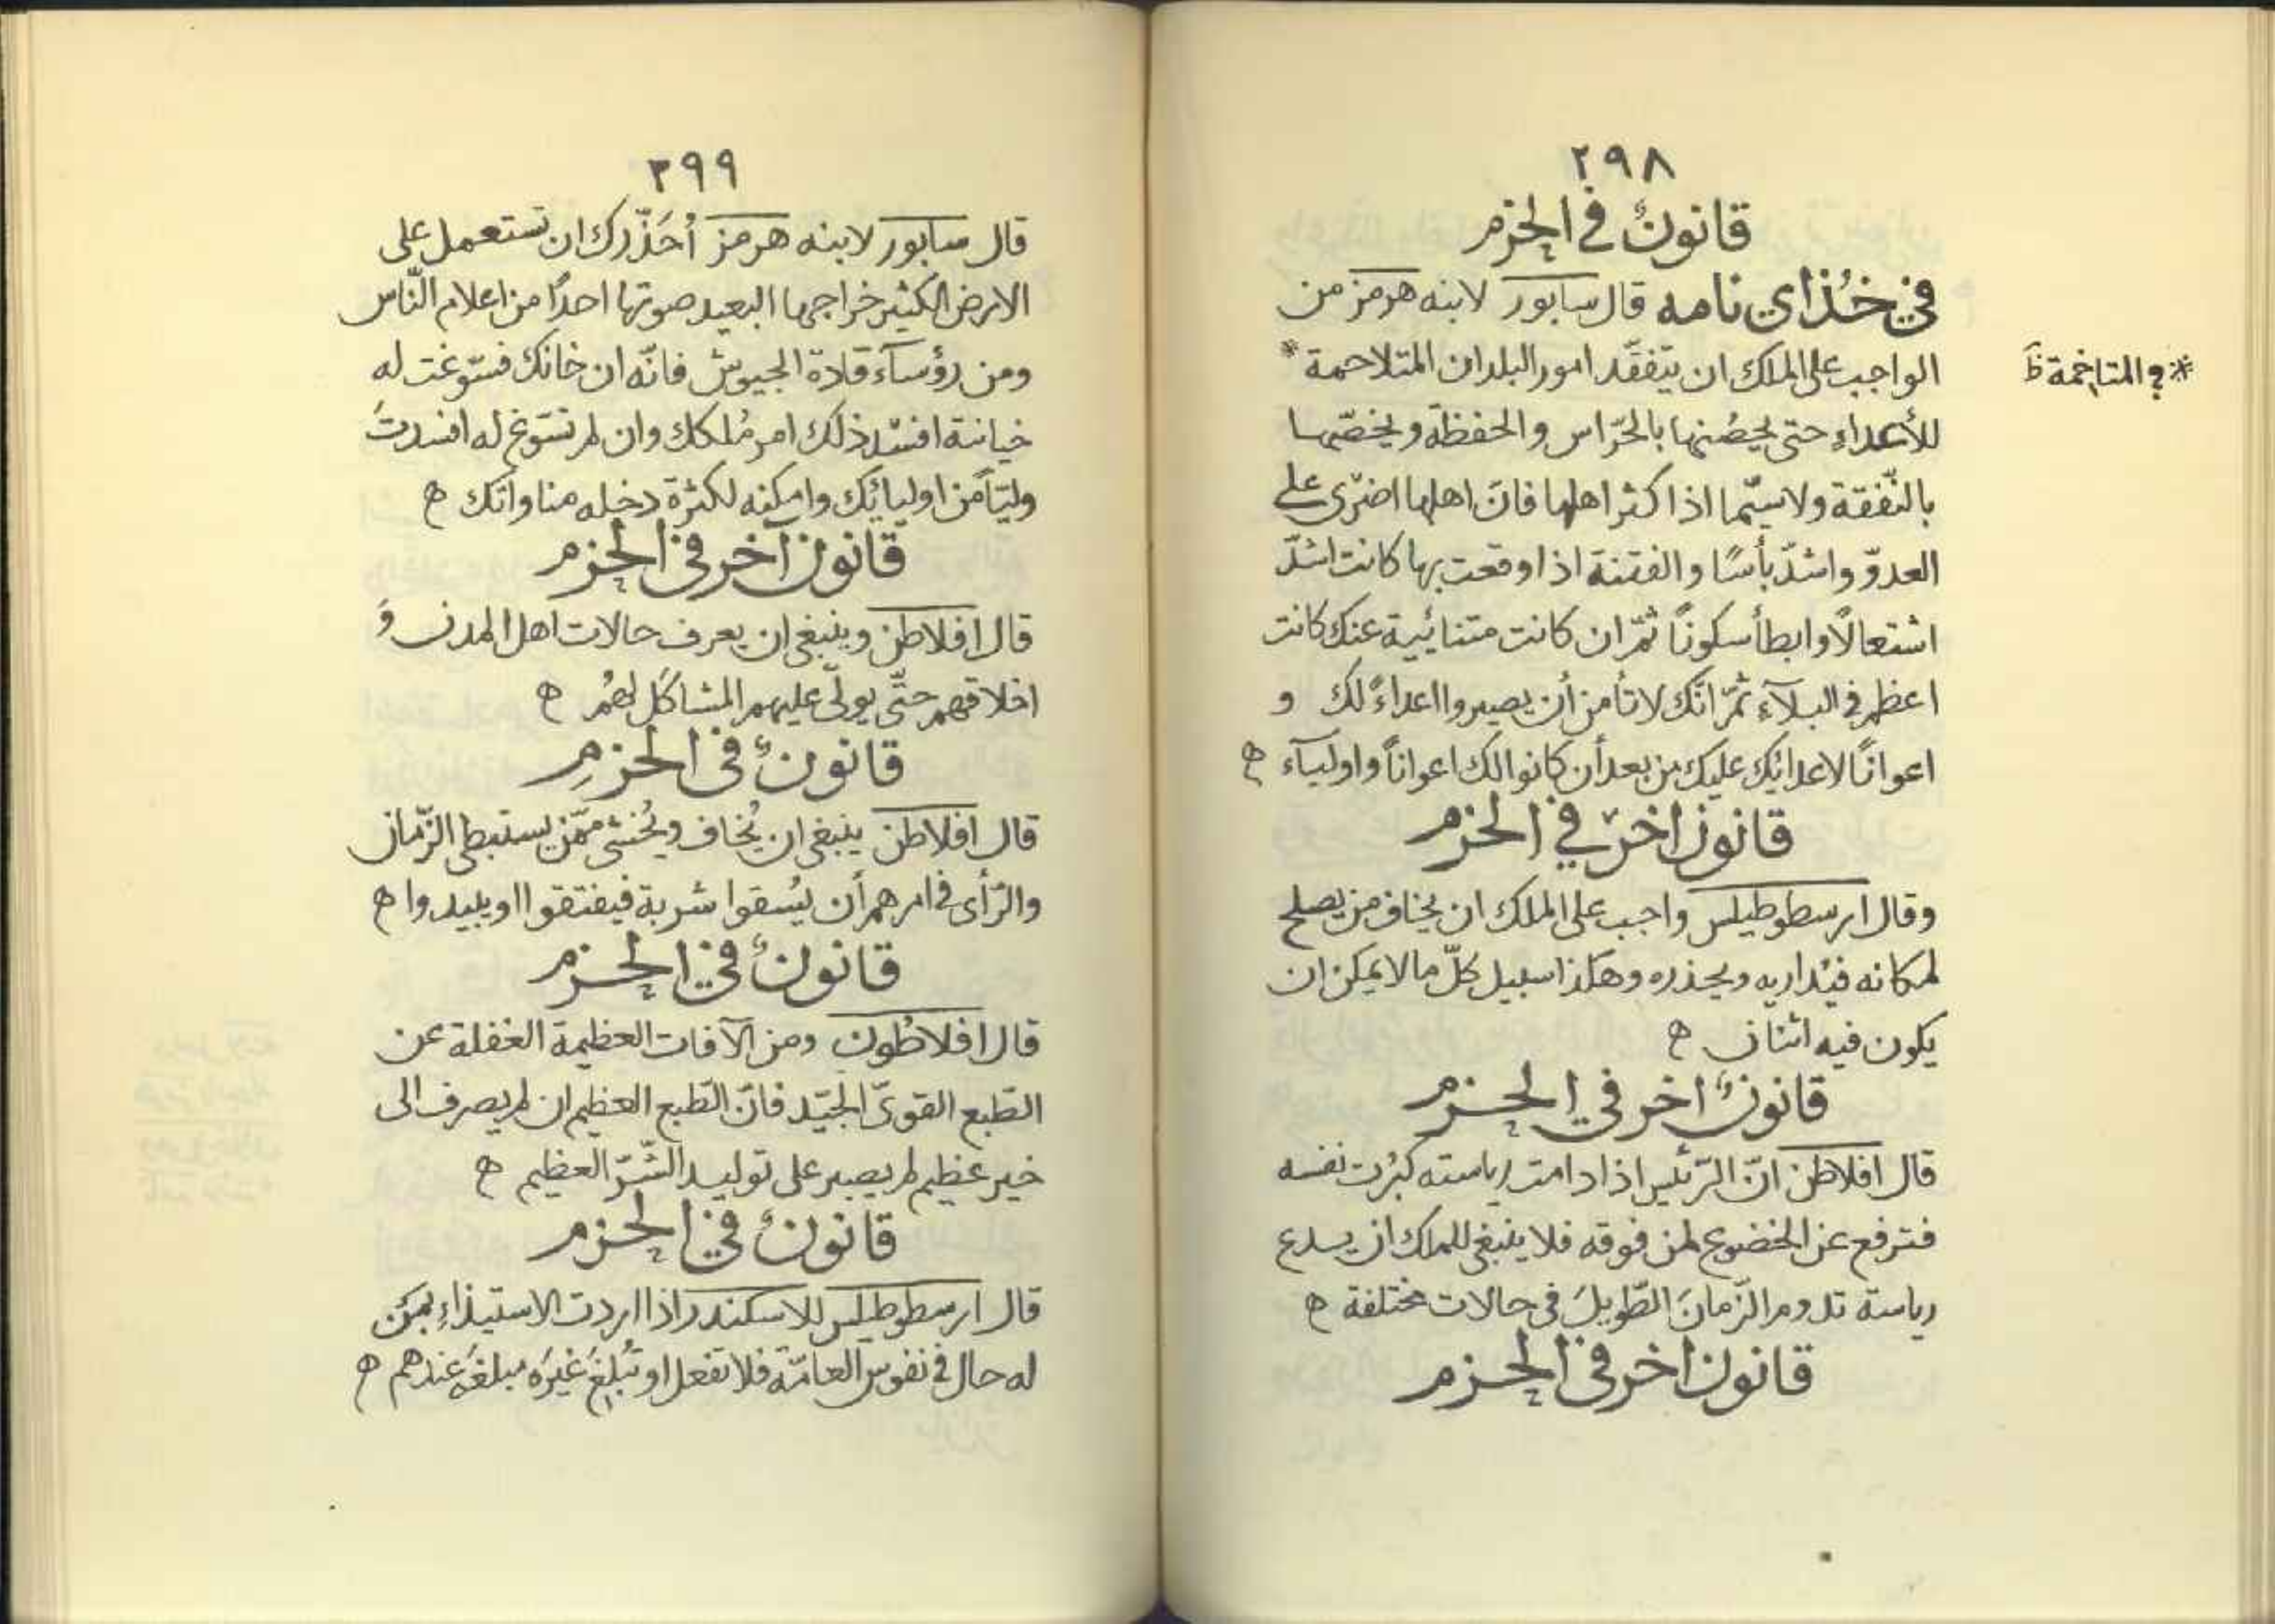 ٢٩٨
قانونٌ في الحزم
في خُذاي نامه قال سابور لابنه هرمز من
الواجب على الملك ان يتفقّد امور البلدان المتلاحمة *
*؟ المتاخمة ظ
للأعداءِ حتى يحصّنها بالحرّاس والحفظة ويخصّها
بالنّفقة ولا سيّما اذا كثر اهلها فانّ اهلها اضرى على
العدوّ واشدّ بأسًا والفتنة اذا وقعت بها كانت اشدّ
اشتعالًا وابطأ سكونًا ثمّ ان كانت متنائية عنك كانت
اعظم في البلآءِ ثمّ انّك لا تأمن أن يصيروا اعداءً لك و
اعوانًا لاعدائك عليك من بعد أن كانوا لك اعوانًا واوليآء ه
قانون اخر في الحزم
وقال ارسطوطيلس واجب على الملك ان يخاف من يصلح
لمكانه فيُداريه ويحذره وهكذا سبيل كلّ ما لا يمكن ان
يكون فيه اثنان ه
قانونٌ اخر في الحزم
قال افلاطن انّ الرّئيس اذا دامت رياسته كبُرت نفسه
فترفع عن الخضوع لمن فوقه فلا ينبغي للملك ان يدع
رياسة تدوم الزّمانَ الطّويلَ في حالات مختلفة ه
قانون اخر في الحزم
٢٩٩
قال سابور لابنه هرمز أُحَذّرك ان تستعمل على
الارض الكثير خراجها البعيد صوتها احدًا من اعلام النّاس
ومن رؤسآء قادة الجيوش فانّه ان خانك فسّوغت له
خيانة افسد ذلك امر مُلكك وان لم تسّوغ له افسدتَ
وليّاً من اوليائك وامكنه لكثرة دخله مناواتك ه
قانون آخر في الحزم
قال افلاطن وينبغي ان يعرف حالات اهل المدن وَ
اخلاقهم حتّى يولّى عليهم المشاكل لهُم ه
قانونٌ في الحزمِ
قال افلاطن ينبغي ان يُخاف ويُخشى ممّن يستبطى الزّمان
والرّأى في امرهم أن يُسقوا شربة فيفتقوا او يبيدوا ه
قانونٌ في الحزم
قال افلاطُون ومن الآفات العظيمة الغفلة عن
الطّبع القوىّ الجيّد فانّ الطّبع العظيم ان لم يصرف الى
خير عظيم لم يصبر على توليد الشّرّ العظيم ه
قانونٌ في الحزم
قال ارسطوطيلس للاسكندر اذا اردت الاستيذاءِ بمَن
له حال في نفوس العامّة فلا تفعل او تُبلِغَ غيرَه مبلغَه عندهم ه